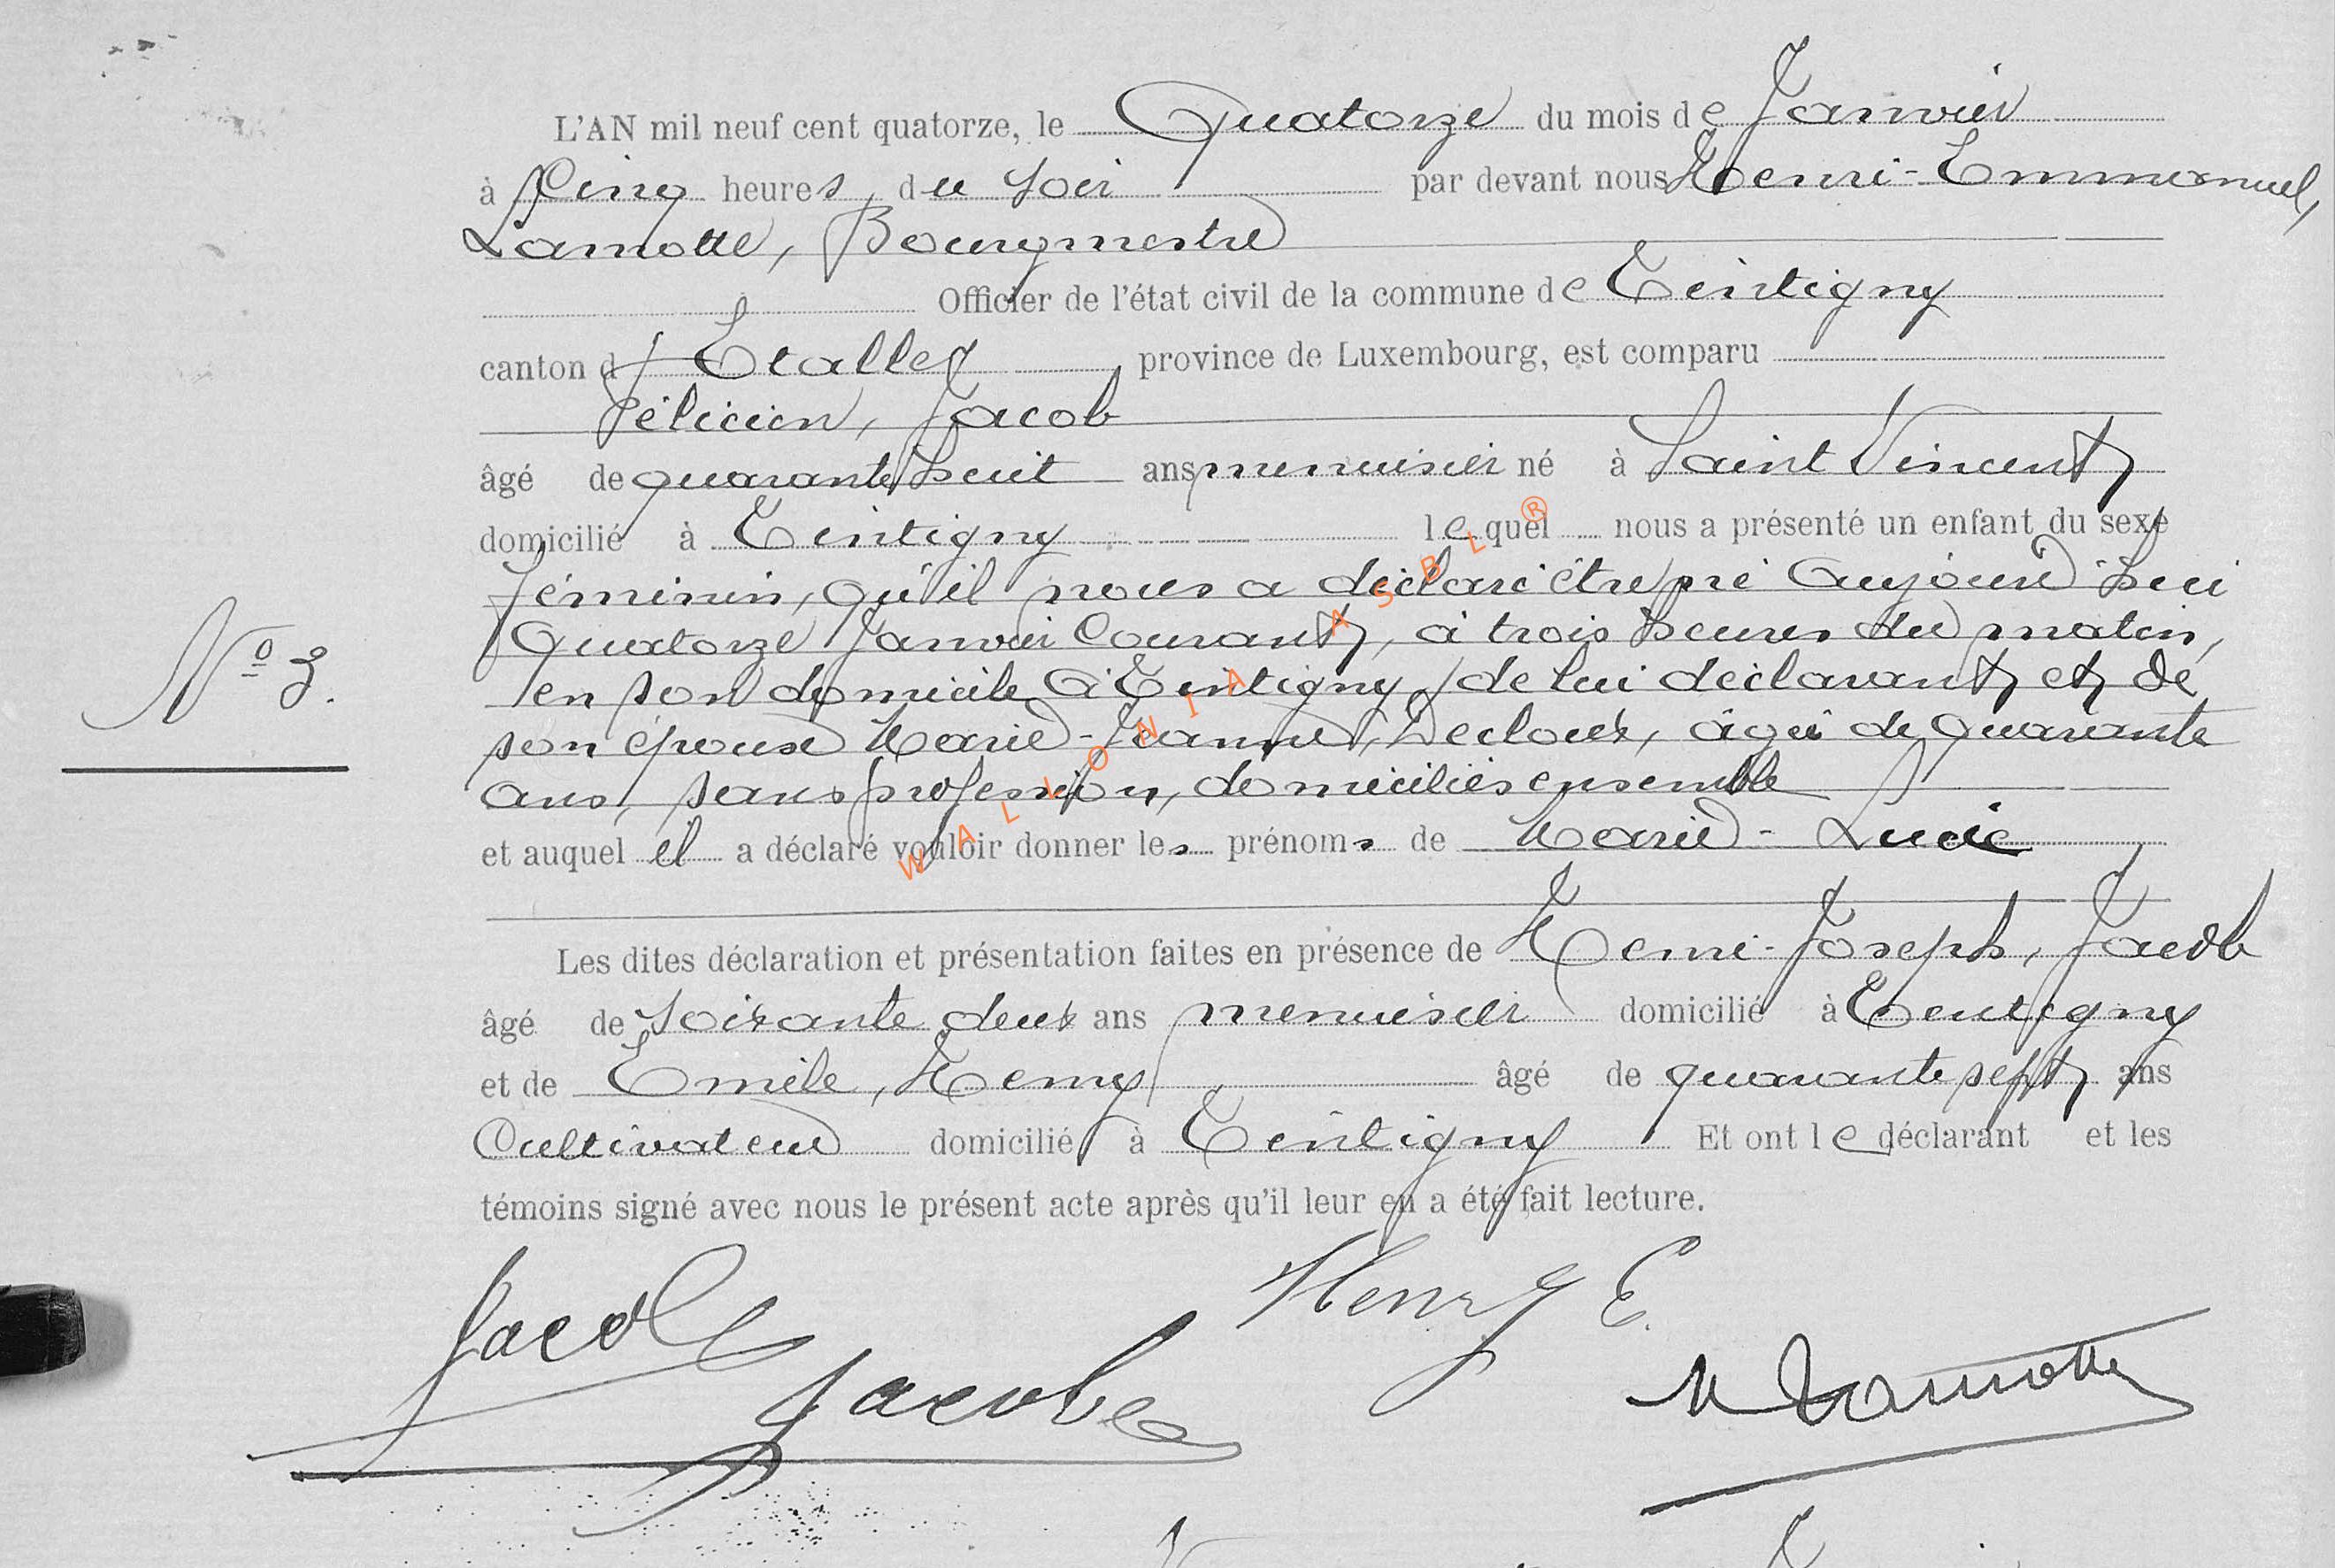 L'AN mil neuf cent quatorze, le Quatorze du mois de Janvier
à Cinq heures du soir par devant nous Henri-Emmanuel,
Lamotte, Bourgmestre
Officier de l'état civil de la commune de Tintigny
canton d'Etalle province de Luxembourg, est comparu
Félicien, Jacob
âgé de quarante huit ans menuisier né à Saint Vincent
domicilié à Tintigny lequel nous a présenté un enfant du sexe
féminin, qu'il nous a déclaré être né Aujourd'hui
Quatorze Janvier Courant, à trois heures du matin,
N° 3.
en son domicile à Tintigny, de lui déclarant et de
son épouse Marie-Jeanne, Décloux, âgée de quarante
ans, sans profession, domiciliés ensemble
et auquel il a déclaré vouloir donner les prénoms de Marie-Lucie
WALLONIA ASBL ®
Les dites déclaration et présentation faites en présence de Henri-Joseph, Jacob
âgé de soixante deux ans menuisier domicilié à Tintigny
et de Emile, Henry, âgé de quarante sept ans
Cultivateur domicilié à Tintigny Et ont le déclarant et les
témoins signé avec nous le présent acte après qu'il leur en a été fait lecture.
Jacob
Henry E.
Jacob
H Lamotte